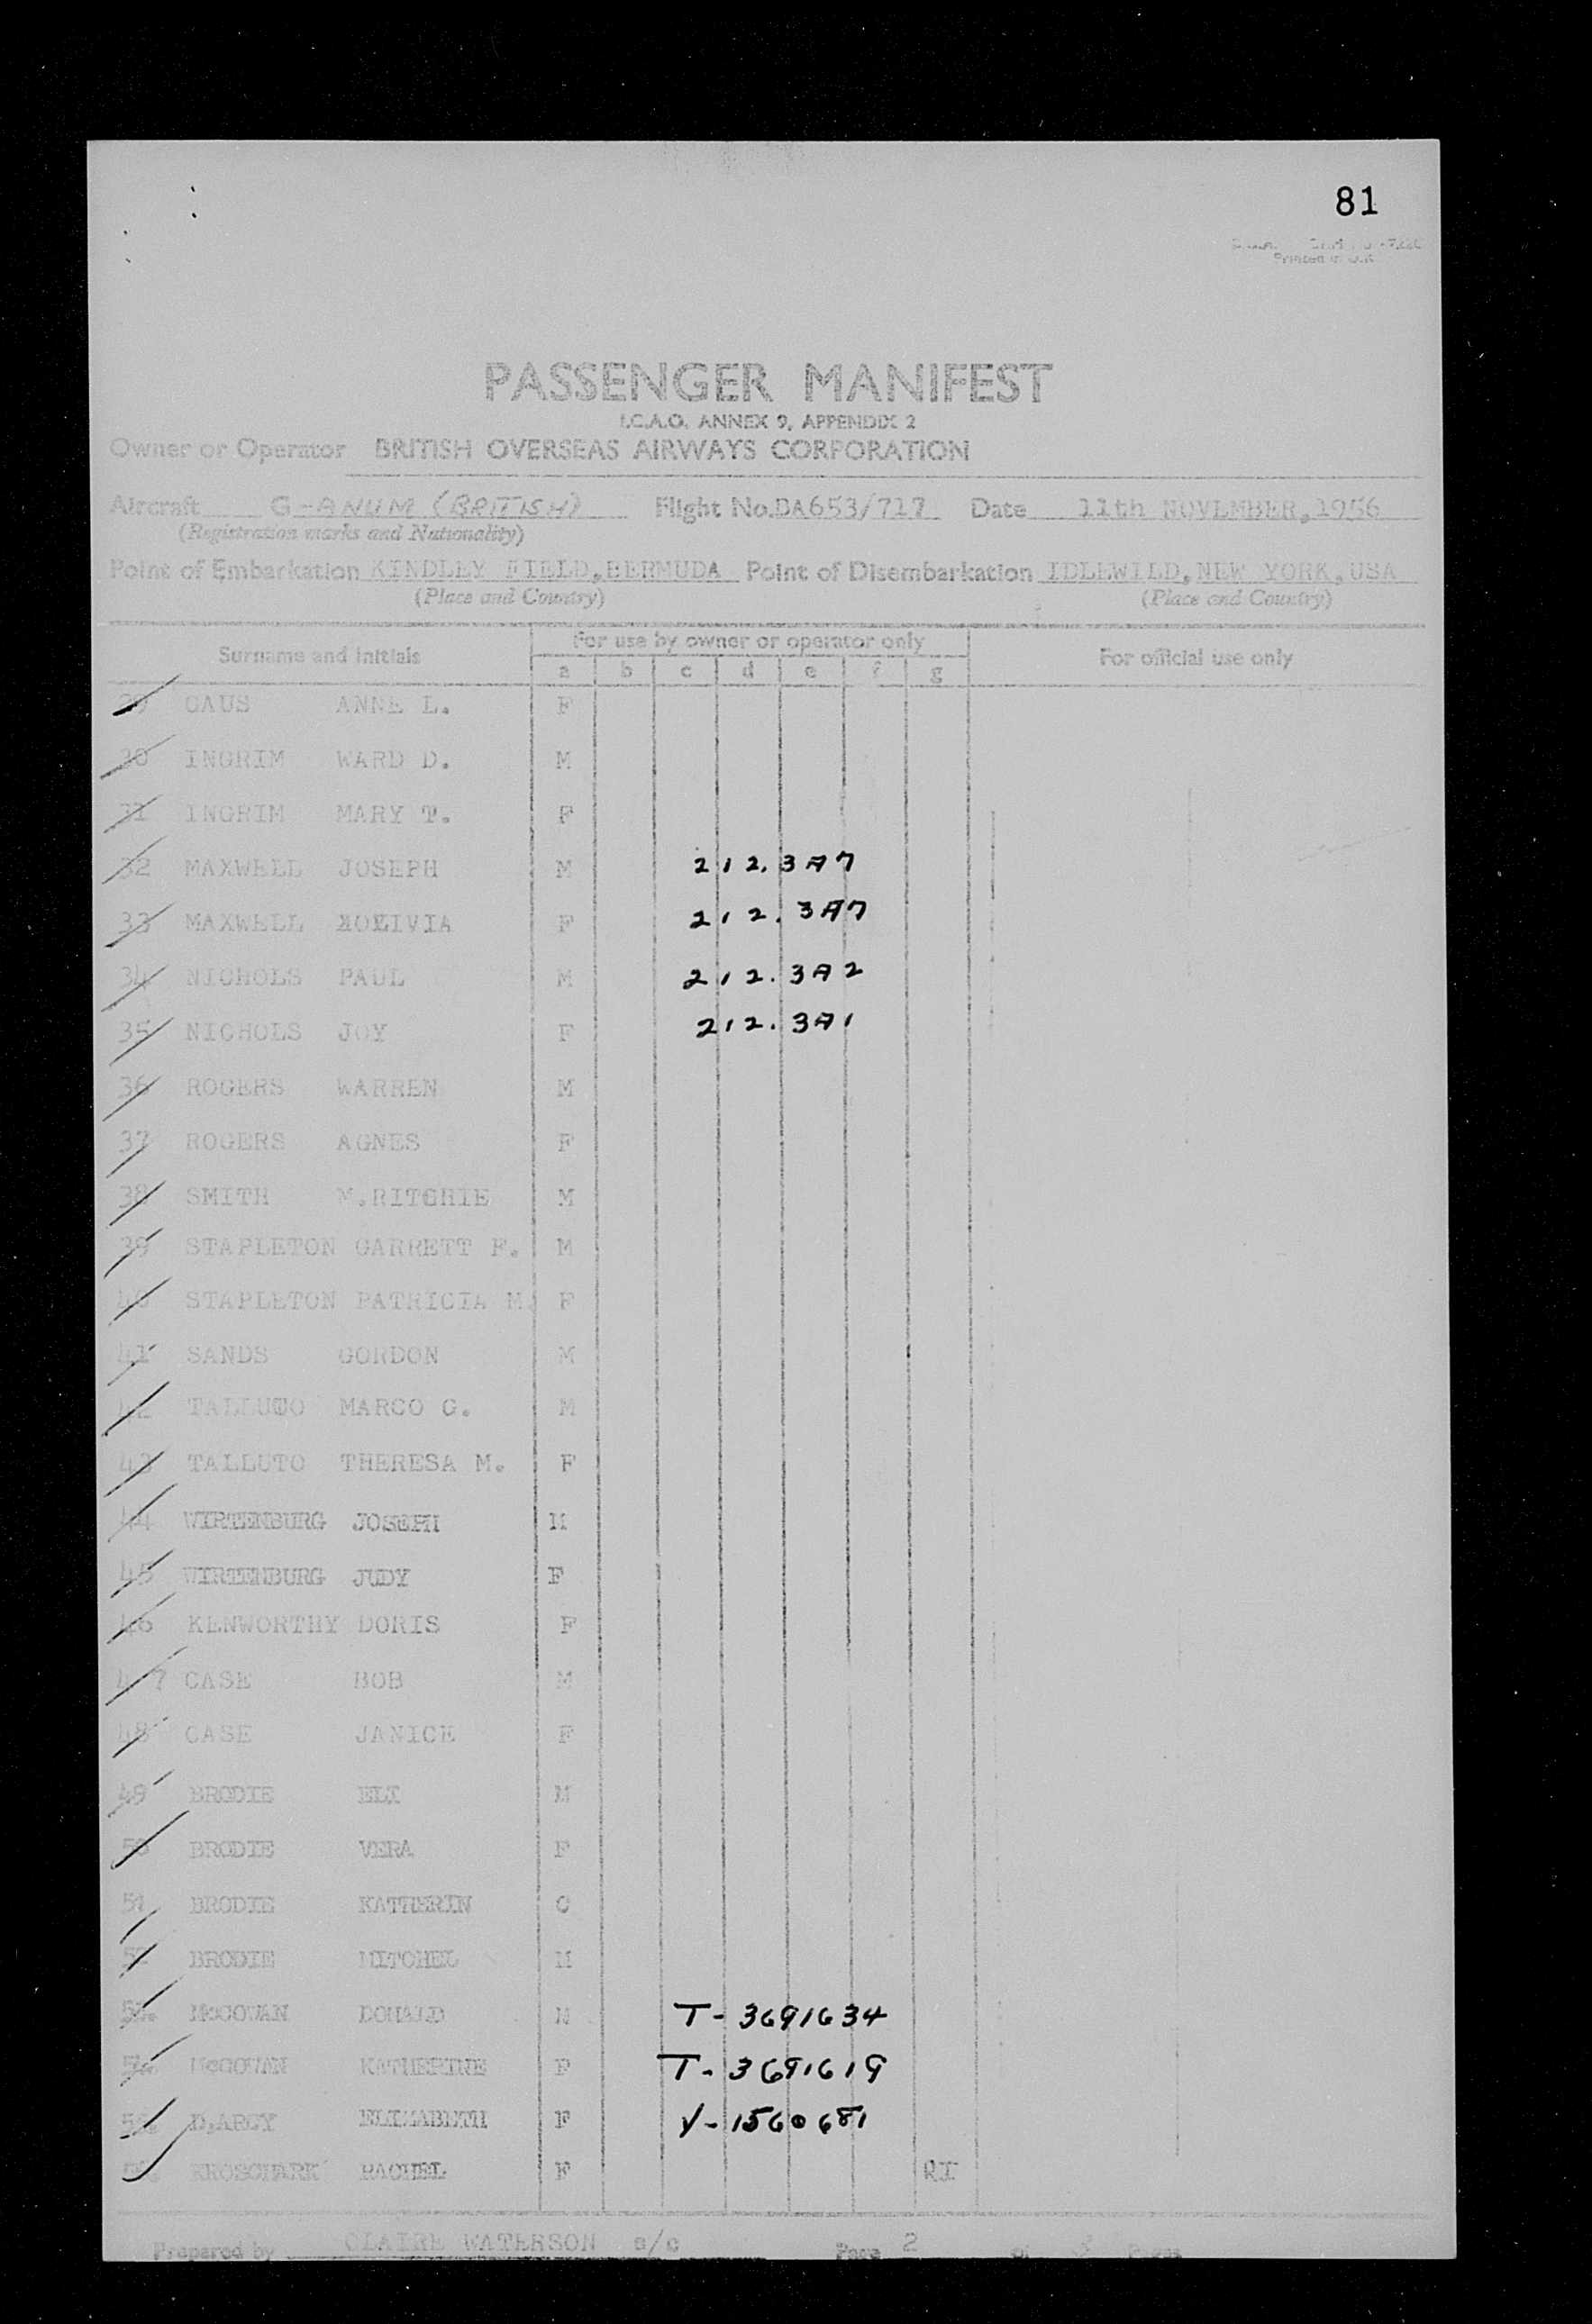 81
Printed in U.K.
PASSENGER MANIFEST
I.C.A.O. ANNEX 9, APPENDIX 2
Owner or Operator BRITISH OVERSEAS AIRWAYS CORPORATION
Aircraft G-ANUM (BRITISH) Flight No. BA653/717 Date 11th NOVEMBER, 1956
(Registration marks and Nationality)
Point of Embarkation KINDLEY FIELD, BERMUDA Point of Disembarkation IDLEWILD, NEW YORK, USA
(Place and Country) (Place and Country)
Surname and initials For use by owner or operator only For official use only
a b c d e f g
29 GAUS ANNE L. F
30 INGRIM WARD D. M
31 INGRIM MARY T. F
32 MAXWELL JOSEPH M 212.3A7
33 MAXWELL OLIVIA F 212.3A7
34 NICHOLS PAUL M 212.3A2
35 NICHOLS JOY F 212.3A1
36 ROGERS WARREN M
37 ROGERS AGNES F
38 SMITH M.RITCHIE M
39 STAPLETON GARRETT F. M
40 STAPLETON PATRICIA M. F
41 SANDS GORDON M
42 TALLUTO MARCO G. M
43 TALLUTO THERESA M. F
44 WIRTENBURG JOSEPH M
45 WIRTENBURG JUDY F
46 KENWORTHY DORIS F
47 CASE BOB M
48 CASE JANICE F
49 BRODIE ELI M
50 BRODIE VERA F
51 BRODIE KATHERIN C
52 BRODIE MITCHEL M
53. McGOWAN DONALD M T-3691634
54. McGOWAN KATHERINE F T-3691619
55. D,ARCY ELIZABETH F V-1560681
56. RACHEL F RI
Prepared by CLAIRE WATERSON a/c Page 2 of 3 Pages